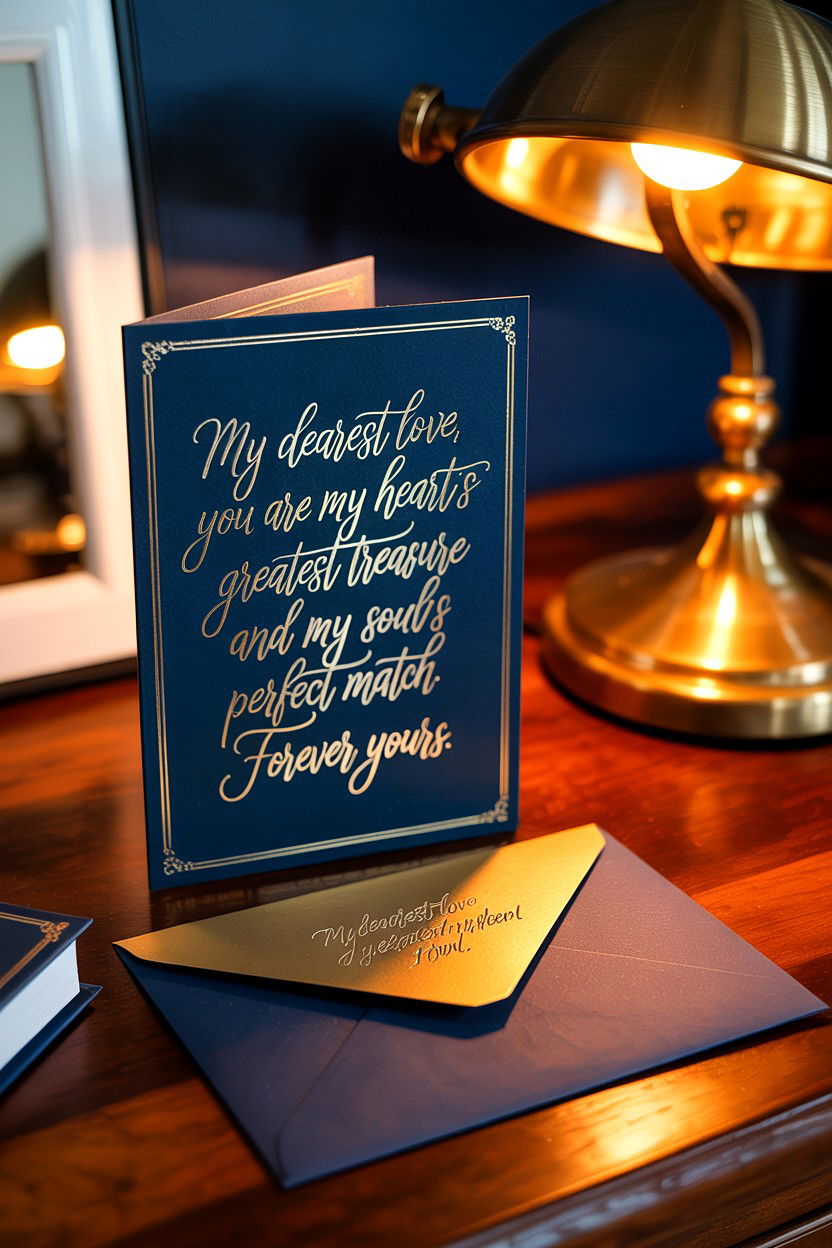 My dearest love,
you are my heart's
greatest treasure
and my soul's
perfect match.
Forever yours.
My dearest love